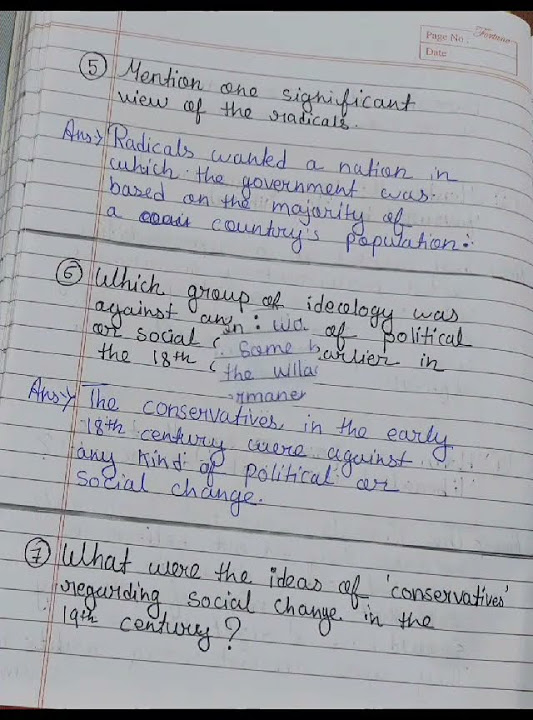 Page No.: Fortune
Date
⑤ Mention one significant
view of the radicals.
Ans:→ Radicals wanted a nation in
which the government was
based on the majority of
a country's population.
⑥ Which group of ideology was
against any of political
or social earlier in
the 18th
same
the
Ans:→ The conservatives, in the early
18th century were against
any kind of political or
social change.
⑦ What were the ideas of 'conservatives'
regarding social change in the
19th century?